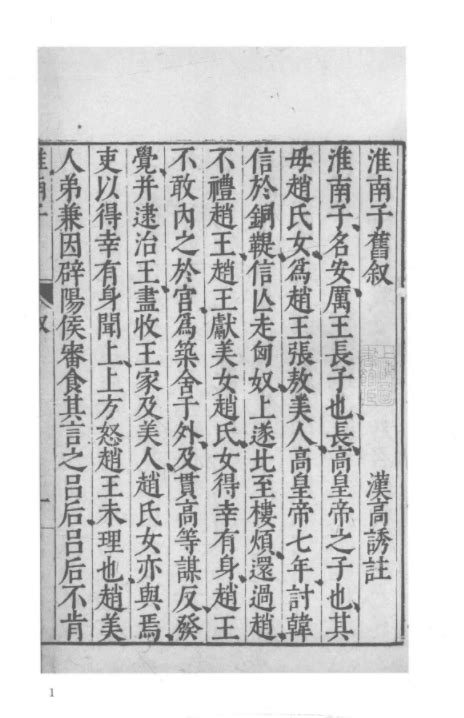 淮南子舊叙　漢高誘註
淮南子、名安、厲王長子也、長、高皇帝之子也、其
母趙氏女、爲趙王張敖美人、高皇帝七年、討韓
信於銅鞮、信亾走匈奴、上遂北至樓煩、還過趙、
不禮趙王、趙王獻美女趙氏女得幸有身、趙王
不敢內之於宮、爲築舍于外、及貫高等謀反、發
覺、并逮治王、盡收王家及美人、趙氏女亦與焉、
吏以得幸有身聞上、上方怒趙王未理也、趙美
人弟兼因辟陽侯審食其言之呂后、呂后不肯
淮南子 叙 一
1